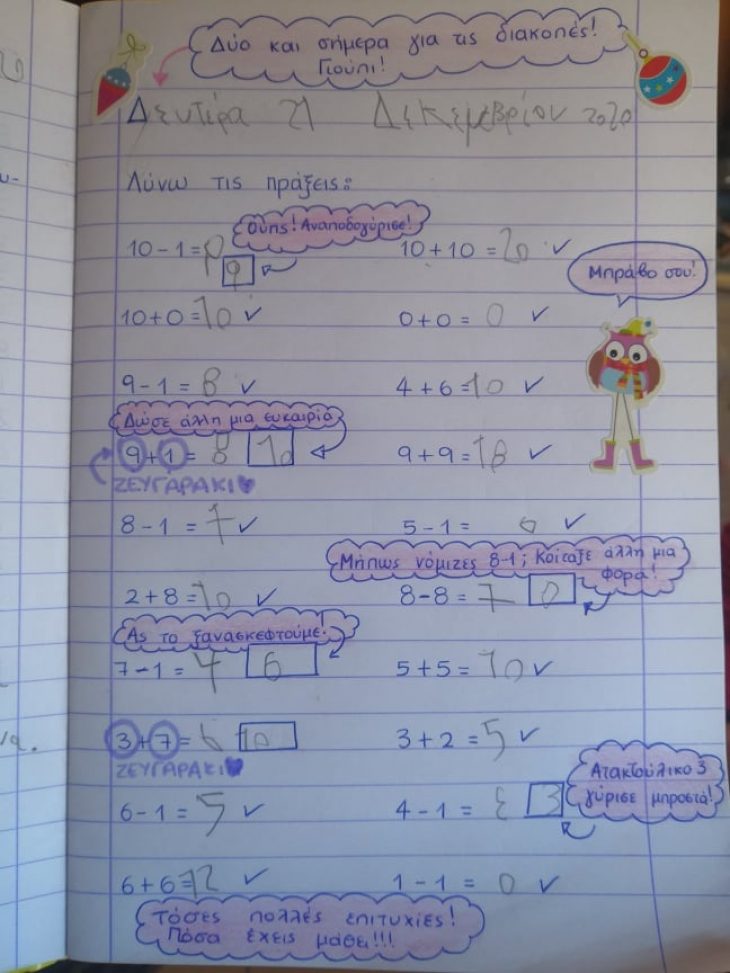 Δύο και σήμερα για τις διακοπές!
Γιούπι!
Δευτέρα 21 Δεκεμβρίου 2020
Λύνω τις πράξεις:
Ούπς! Αναποδογύρισε!
10-1=9 10+10=20 ✓
9
Μπράβο σου!
10+0=10 ✓ 0+0=0 ✓
9-1=8 ✓ 4+6=10 ✓
Δώσε άλλη μια ευκαιρία
9+1=8 10 9+9=18 ✓
ΖΕΥΓΑΡΑΚΙ♥
8-1=7 ✓ 5-1= ✓
Μήπως νόμιζες 8-1; Κοίταξε άλλη μια
φορά!
2+8=10 ✓ 8-8=7 0
Ας το ξανασκεφτούμε!
7-1=4 6 5+5=10 ✓
3+7=6 10 3+2=5 ✓
ΖΕΥΓΑΡΑΚΙ♥
Ατακτούλικο 3
γύρισε μπροστά!
6-1=5 ✓ 4-1=Ɛ 3
6+6=12 ✓ 1-1=0 ✓
Τόσες πολλές επιτυχίες!
Πόσα έχεις μάθει!!!